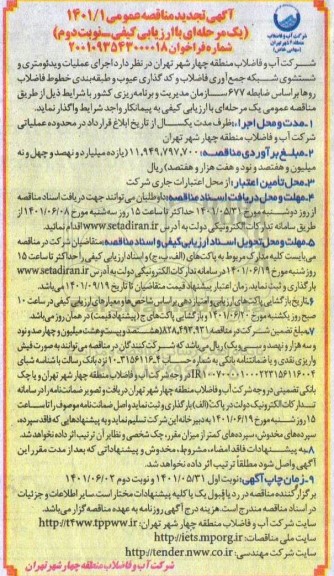 شرکت آب و فاضلاب
منطقه ۴ شهر تهران
(سهامی خاص)
آگهی تجدید مناقصه عمومی ۱۴۰۱/۱
(یک مرحله‌ای با ارزیابی کیفی_نوبت دوم)
شماره فراخوان ۲۰۰۱۰۹۳۵۴۳۰۰۰۰۱۸
شرکت آب و فاضلاب منطقه چهار شهر تهران در نظر دارد اجرای عملیات ویدئومتری و
شستشوی شبکه جمع‌آوری فاضلاب و کدگذاری عیوب و طبقه‌بندی خطوط فاضلاب
روها براساس ضابطه ۶۷۷ سازمان مدیریت و برنامه‌ریزی کشور با شرایط ذیل از طریق
مناقصه عمومی یک مرحله‌ای با ارزیابی کیفی به پیمانکار واجد شرایط واگذار نماید.
۱_مدت و محل اجرا: ظرف مدت یکسال از تاریخ ابلاغ قرارداد در محدوده عملیاتی
شرکت آب و فاضلاب منطقه چهار شهر تهران
۲_مبلغ برآوردی مناقصه: ۱۱,۹۴۹,۷۹۷,۷۰۰ (یازده میلیارد و نهصد و چهل و نه
میلیون و هفتصد و نود و هفت هزار و هفتصد) ریال
۳_محل تأمین اعتبار: از محل اعتبارات جاری شرکت
۴_مهلت و محل دریافت اسناد مناقصه: داوطلبان می‌توانند جهت دریافت اسناد مناقصه
از روز دوشنبه مورخ ۱۴۰۱/۰۵/۳۱ حداکثر تا ساعت ۱۵ روز سه‌شنبه مورخ ۱۴۰۱/۰۶/۰۸ از
طریق سامانه تدارکات الکترونیکی دولت به آدرس www.setadiran.ir اقدام نمائید.
۵_مهلت و محل تحویل اسناد ارزیابی کیفی و اسناد مناقصه: متقاضیان شرکت در مناقصه
می‌بایست کلیه مدارک مربوط به پاکت‌های (الف، ب، ج) و اسناد ارزیابی کیفی را حداکثر تا ساعت ۱۵
روز شنبه مورخ ۱۴۰۱/۰۶/۱۹ در سامانه تدارکات الکترونیکی دولت به آدرس www.setadiran.ir
بارگذاری و ثبت نماید. زمان اعتبار پیشنهاد قیمت متقاضیان تا تاریخ ۱۴۰۱/۰۹/۱۹ می‌باشد.
۶_تاریخ بازگشایی پاکت‌های ارزیابی و امتیازدهی براساس شاخص‌ها و معیارهای ارزیابی کیفی در ساعت ۱۰
صبح روز یکشنبه مورخ ۱۴۰۱/۰۶/۲۰ و بازگشایی پاکت‌های ج (پیشنهاد قیمت) در همان روز می‌باشد.
۷_مبلغ تضمین شرکت در مناقصه ۸۲۸,۴۹۳,۹۳۱ (هشتصد و بیست و هشت میلیون و چهارصد و نود
و سه هزار و نهصد و سی و یک) ریال می‌باشد که شرکت‌کنندگان در مناقصه می‌توانند به صورت فیش
واریزی نقدی و یا ضمانتنامه بانکی به شماره حساب ۲۰.۳۱۵۶۱۱۶.۴ نزد بانک رسالت با شناسه شبای
در وجه شرکت آب و فاضلاب منطقه چهار شهر تهران و یا چک
بانکی تضمینی در وجه شرکت آب و فاضلاب منطقه چهار شهر تهران دریافت و تصویر ضمانت‌نامه را در سامانه
تدارکات الکترونیک دولت در پاکت (الف) بارگذاری و ثبت نماید و اصل ضمانت‌نامه موصوف را تا ساعت
۱۵ روز شنبه مورخ ۱۴۰۱/۰۶/۱۹ به دبیرخانه این شرکت تسلیم نماید و به پیشنهادهایی که فاقد سپرده،
سپرده‌های مخدوش، سپرده‌های کمتر از میزان مقرر، چک شخصی و نظایر آن ترتیب اثر داده نخواهد شد.
۸_به پیشنهادات فاقد امضاء، مشروط، مخدوش و پیشنهاداتی که بعد از مدت مقرر این
آگهی واصل شود مطلقا ترتیب اثر داده نخواهد شد.
۹_زمان چاپ آگهی: نوبت اول ۱۴۰۱/۰۵/۳۱ و نوبت دوم ۱۴۰۱/۰۶/۰۲
برگزار کننده مناقصه در رد یا قبول یک یا کلیه پیشنهادات مختار است. سایر اطلاعات و جزئیات
در اسناد مناقصه مندرج است. هزینه درج آگهی روزنامه به عهده مناقصه گزار می‌باشد.
سایت شرکت آب و فاضلاب منطقه چهار شهر تهران: http://t4ww.tppww.ir
سایت ملی مناقصات: http://iets.mporg.ir
سایت شرکت مهندسی: http://tender.nww.co.ir
شرکت آب و فاضلاب منطقه چهار شهر تهران